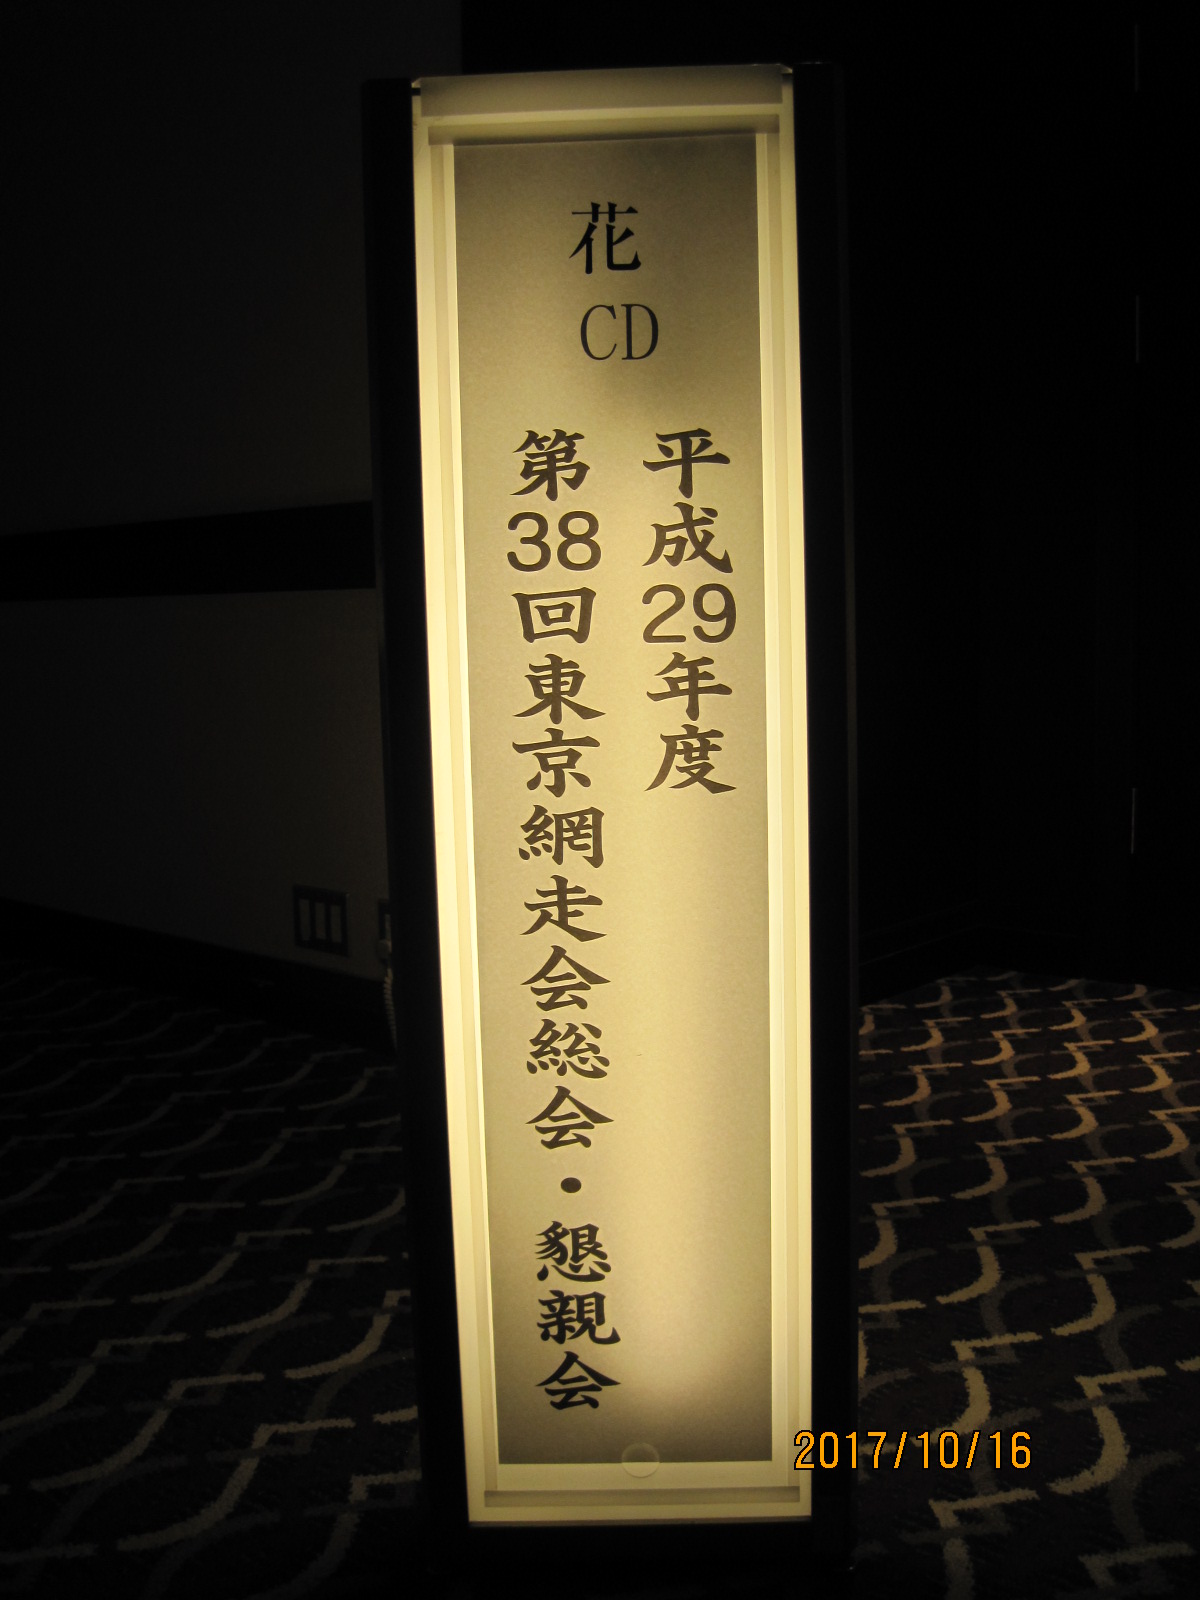 花
CD
平成29年度
第38回東京網走会総会・懇親会
2017/10/16